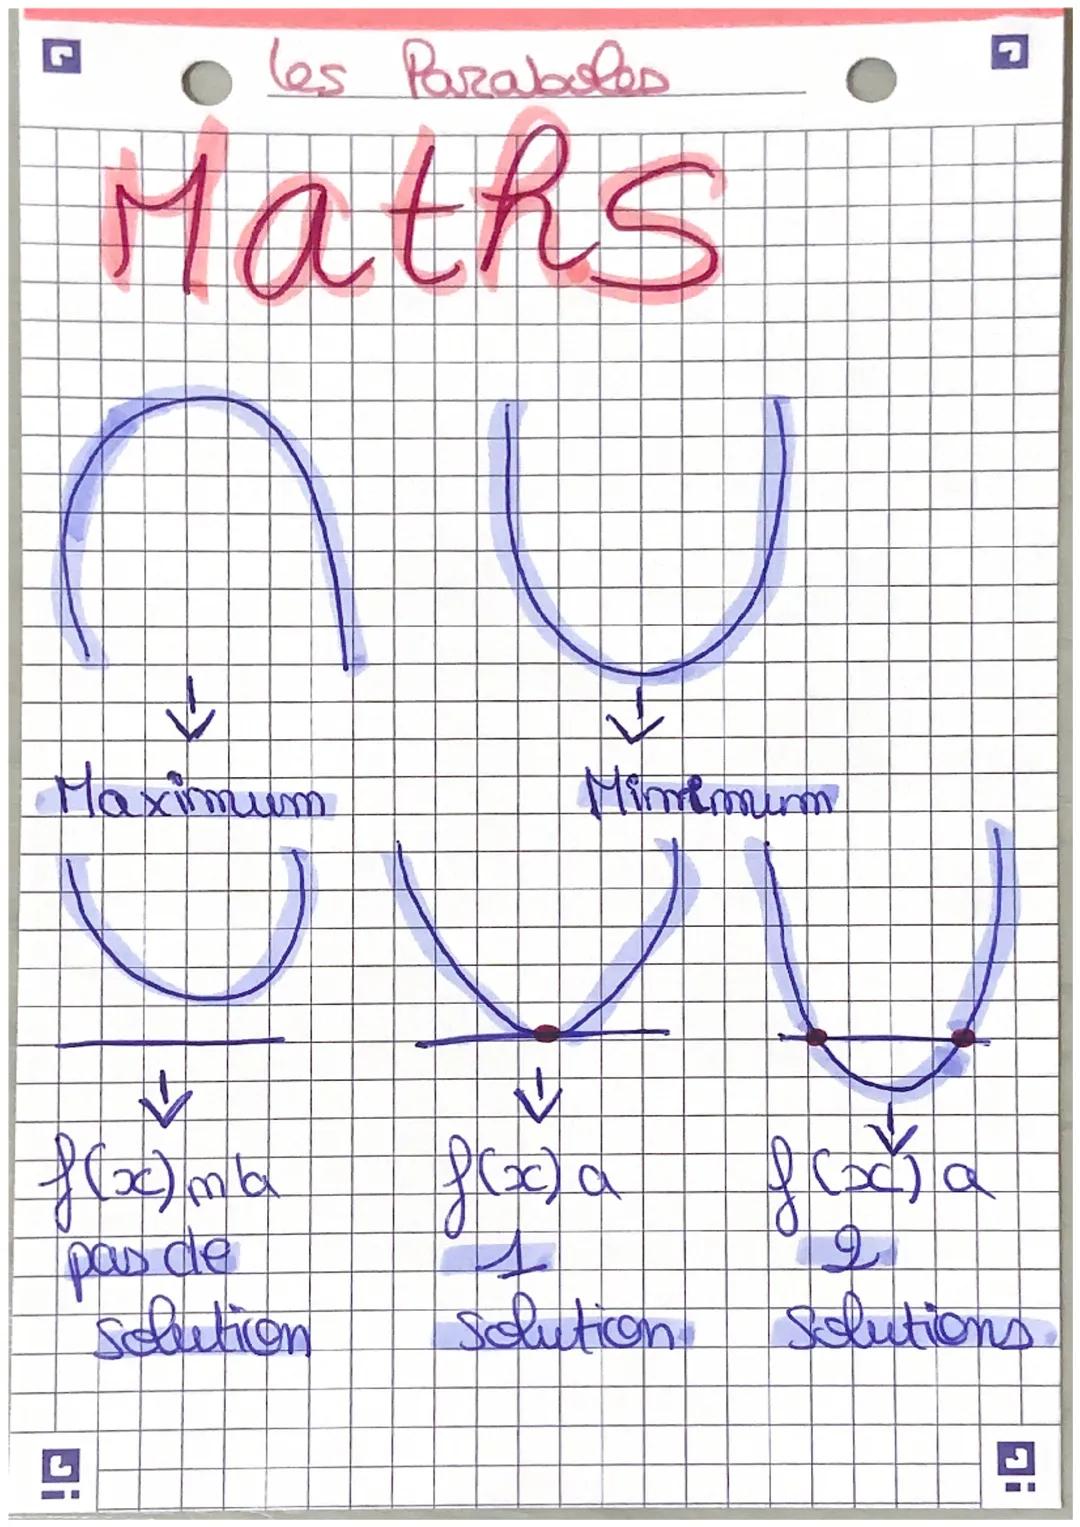 Les Paraboles
Maths
Maximum Minimum
f(x) m'a f(x) a f(x) a
pas de 1 2
solution solution solutions